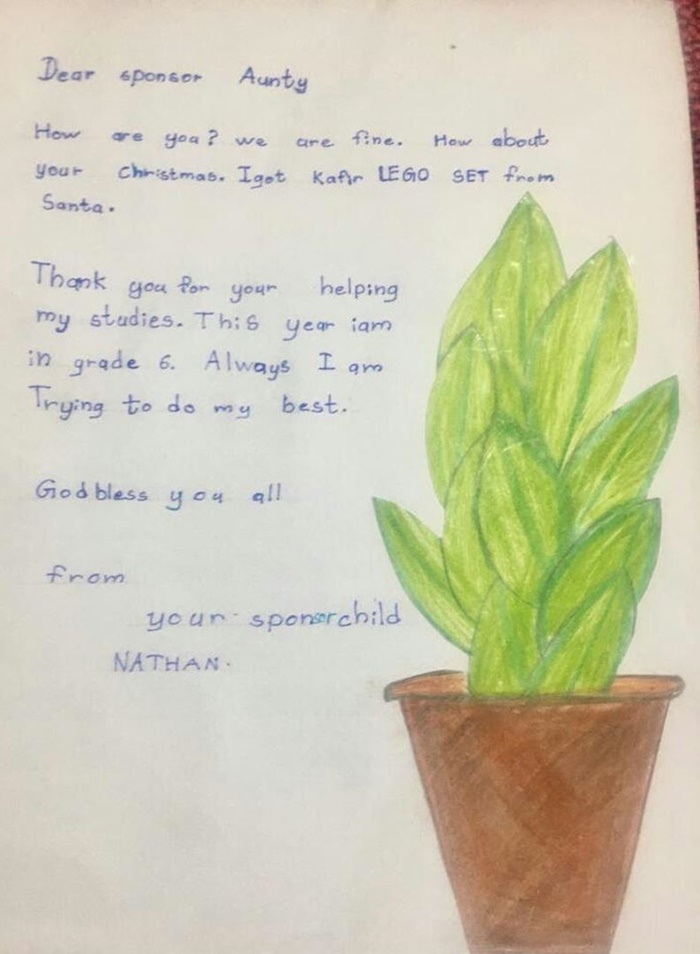 Dear sponsor Aunty
How are you? we are fine. How about
your Christmas. Igot Kafir LEGO SET from
Santa.
Thank you for your helping
my studies. This year iam
in grade 6. Always I am
Trying to do my best.
God bless you all
from
your sponsorchild
NATHAN.